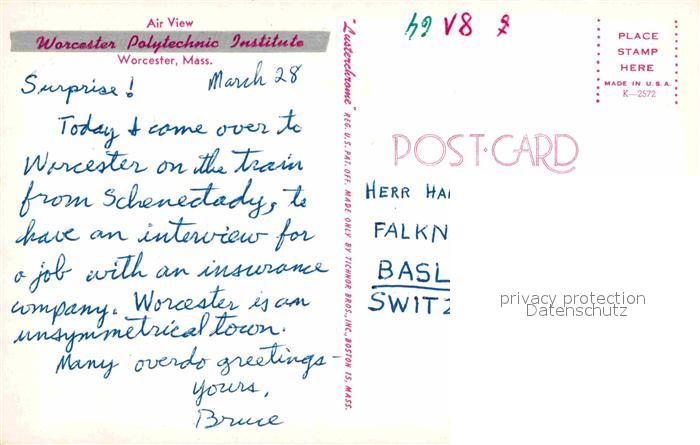 Air View
Worcester Polytechnic Institute
Worcester, Mass.
Surprise! March 28
Today I come over to
Worcester on the train
from Schenectady, to
have an interview for
a job with an insurance
company. Worcester is an
unsymmetrical town.
Many overdo greetings-
Yours,
Bruce
"Lusterchrome" REG. U.S. PAT. OFF. MADE ONLY BY TICHNOR BROS., INC., BOSTON 15, MASS.
64 V8
PLACE
STAMP
HERE
MADE IN U.S.A.
K-2572
POST-CARD
HERR HA
FALKN
BASL
SWITZ
privacy protection
Datenschutz